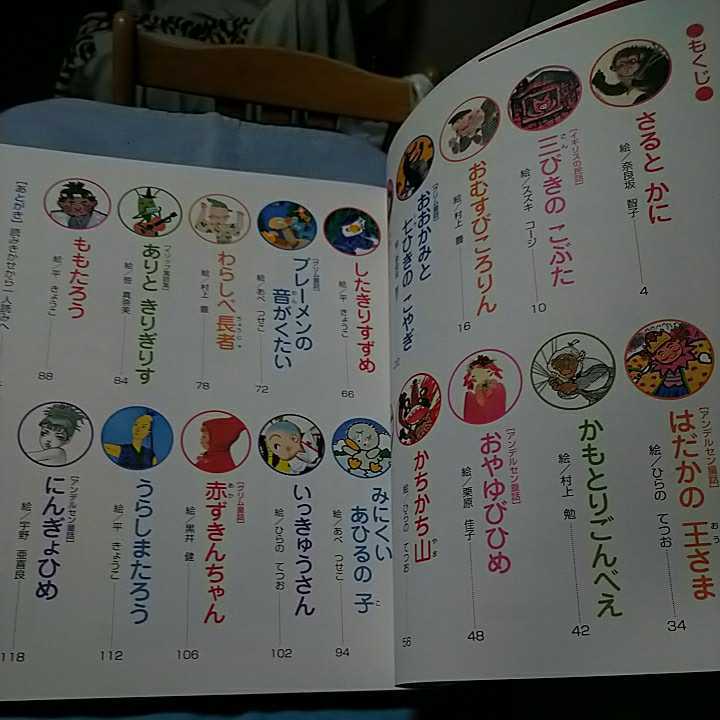 ●もくじ●
さると かに
絵/奈良坂 智子
4
[イギリスの民話]
三びきの こぶた
さん
絵/スズキ コージ
10
おむすびころりん
絵/村上 豊
16
[グリム童話]
おおかみと
七ひきの こやぎ
はだかの 王さま
おう
[アンデルセン童話]
絵/ひらの てつお
34
かもとりごんべえ
絵/村上 勉
42
[アンデルセン童話]
おやゆびひめ
絵/栗原 佳子
48
かちかち山
やま
絵/ひらの てつお
56
したきりすずめ
絵/平 きょうこ
66
[グリム童話]
ブレーメンの
音がくたい
おん
絵/あべ つせこ
72
わらしべ 長者
ちょうじゃ
絵/村上 豊
78
[イソップ童話集]
ありと きりぎりす
84
ももたろう
絵/平 きょうこ
88
[あとがき] 読みきかせから一人読みへ
みにくい
あひるの 子
こ
絵/あべ つせこ
94
いっきゅうさん
絵/ひらの てつお
102
[グリム童話]
赤ずきんちゃん
あか
絵/黒井 健
106
うらしまたろう
絵/平 きょうこ
112
[アンデルセン童話]
にんぎょひめ
絵/宇野 亜喜良
118